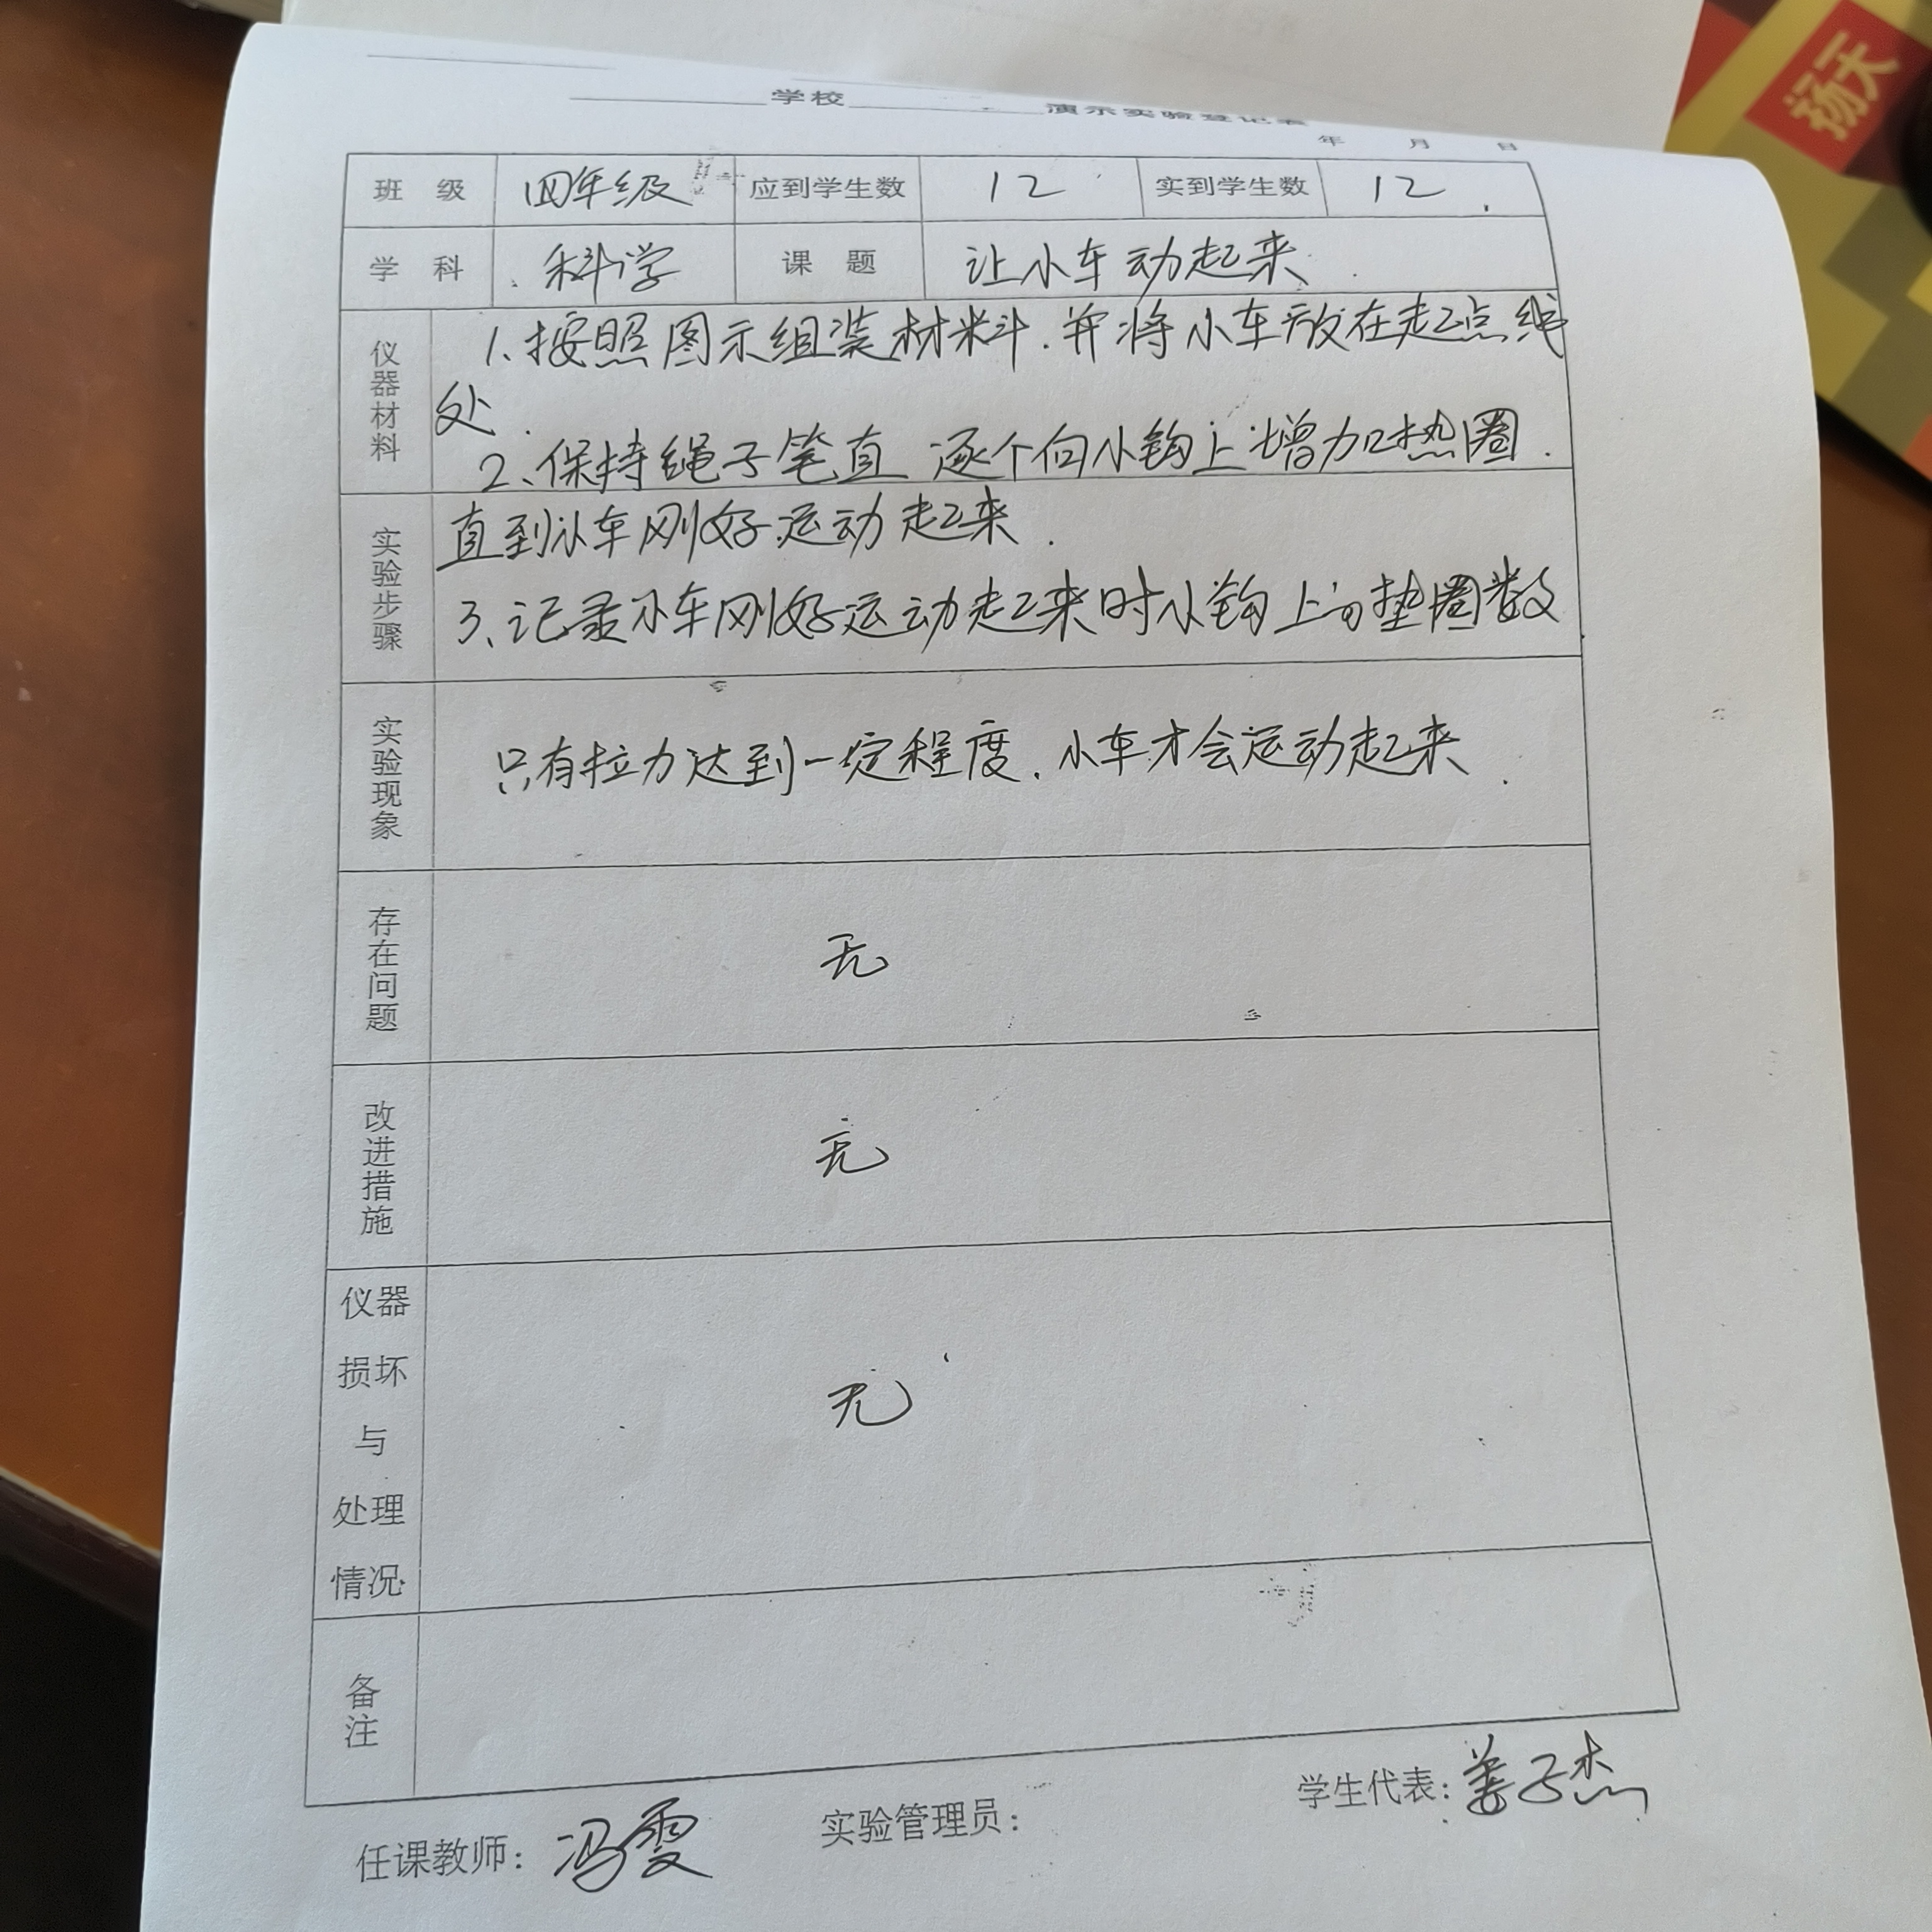 杨天
学校 演示实验登记表
年 月 日
班 级 四年级 应到学生数 12 实到学生数 12
学 科 科学 课 题 让小车动起来
仪器材料 1、按照图示组装材料.并将小车放在起点线
处.
2、保持绳子笔直 逐个向小钩上增加垫圈.
实验步骤 直到小车刚好运动起来.
3、记录小车刚好运动起来时小钩上的垫圈数
实验现象 只有拉力达到一定程度.小车才会运动起来.
存在问题 无
改进措施 无
仪器损坏与处理情况 无
备注
任课教师：冯雯 实验管理员： 学生代表：姜子杰